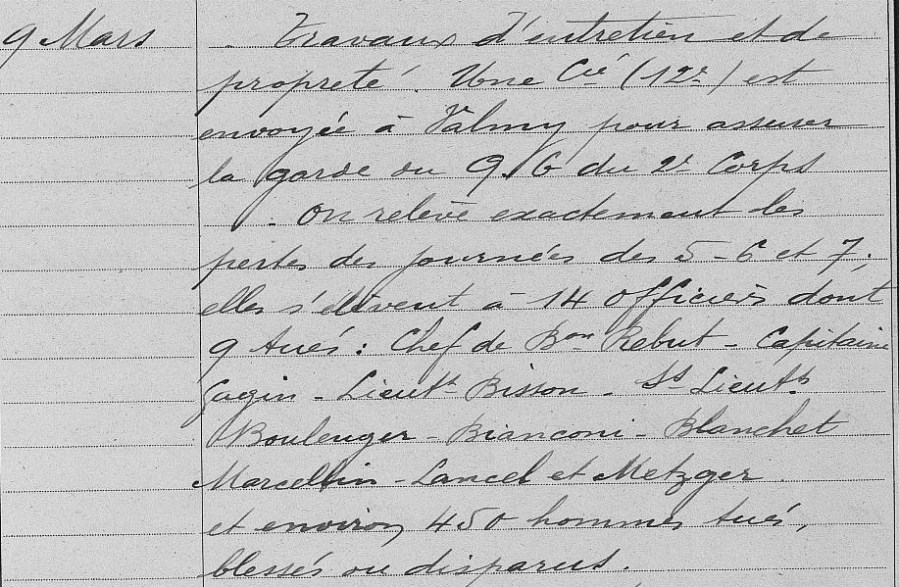 9 Mars . Travaux d'entretien et de
propreté. Une Cie (12e) est
envoyée à Valmy pour assurer
la garde du Q.G du 2e Corps
. On relève exactement les
pertes des journées des 5-6 et 7;
elles s'élèvent à 14 officiers dont
9 tués : Chef de Bon Rebut - Capitaine
Gazin - Lieutt Bisson - St Lieutts
Boulenger - Bianconi - Blanchet
Marcellin - Lancel et Metzger
et environ 450 hommes tués,
blessés ou disparus.